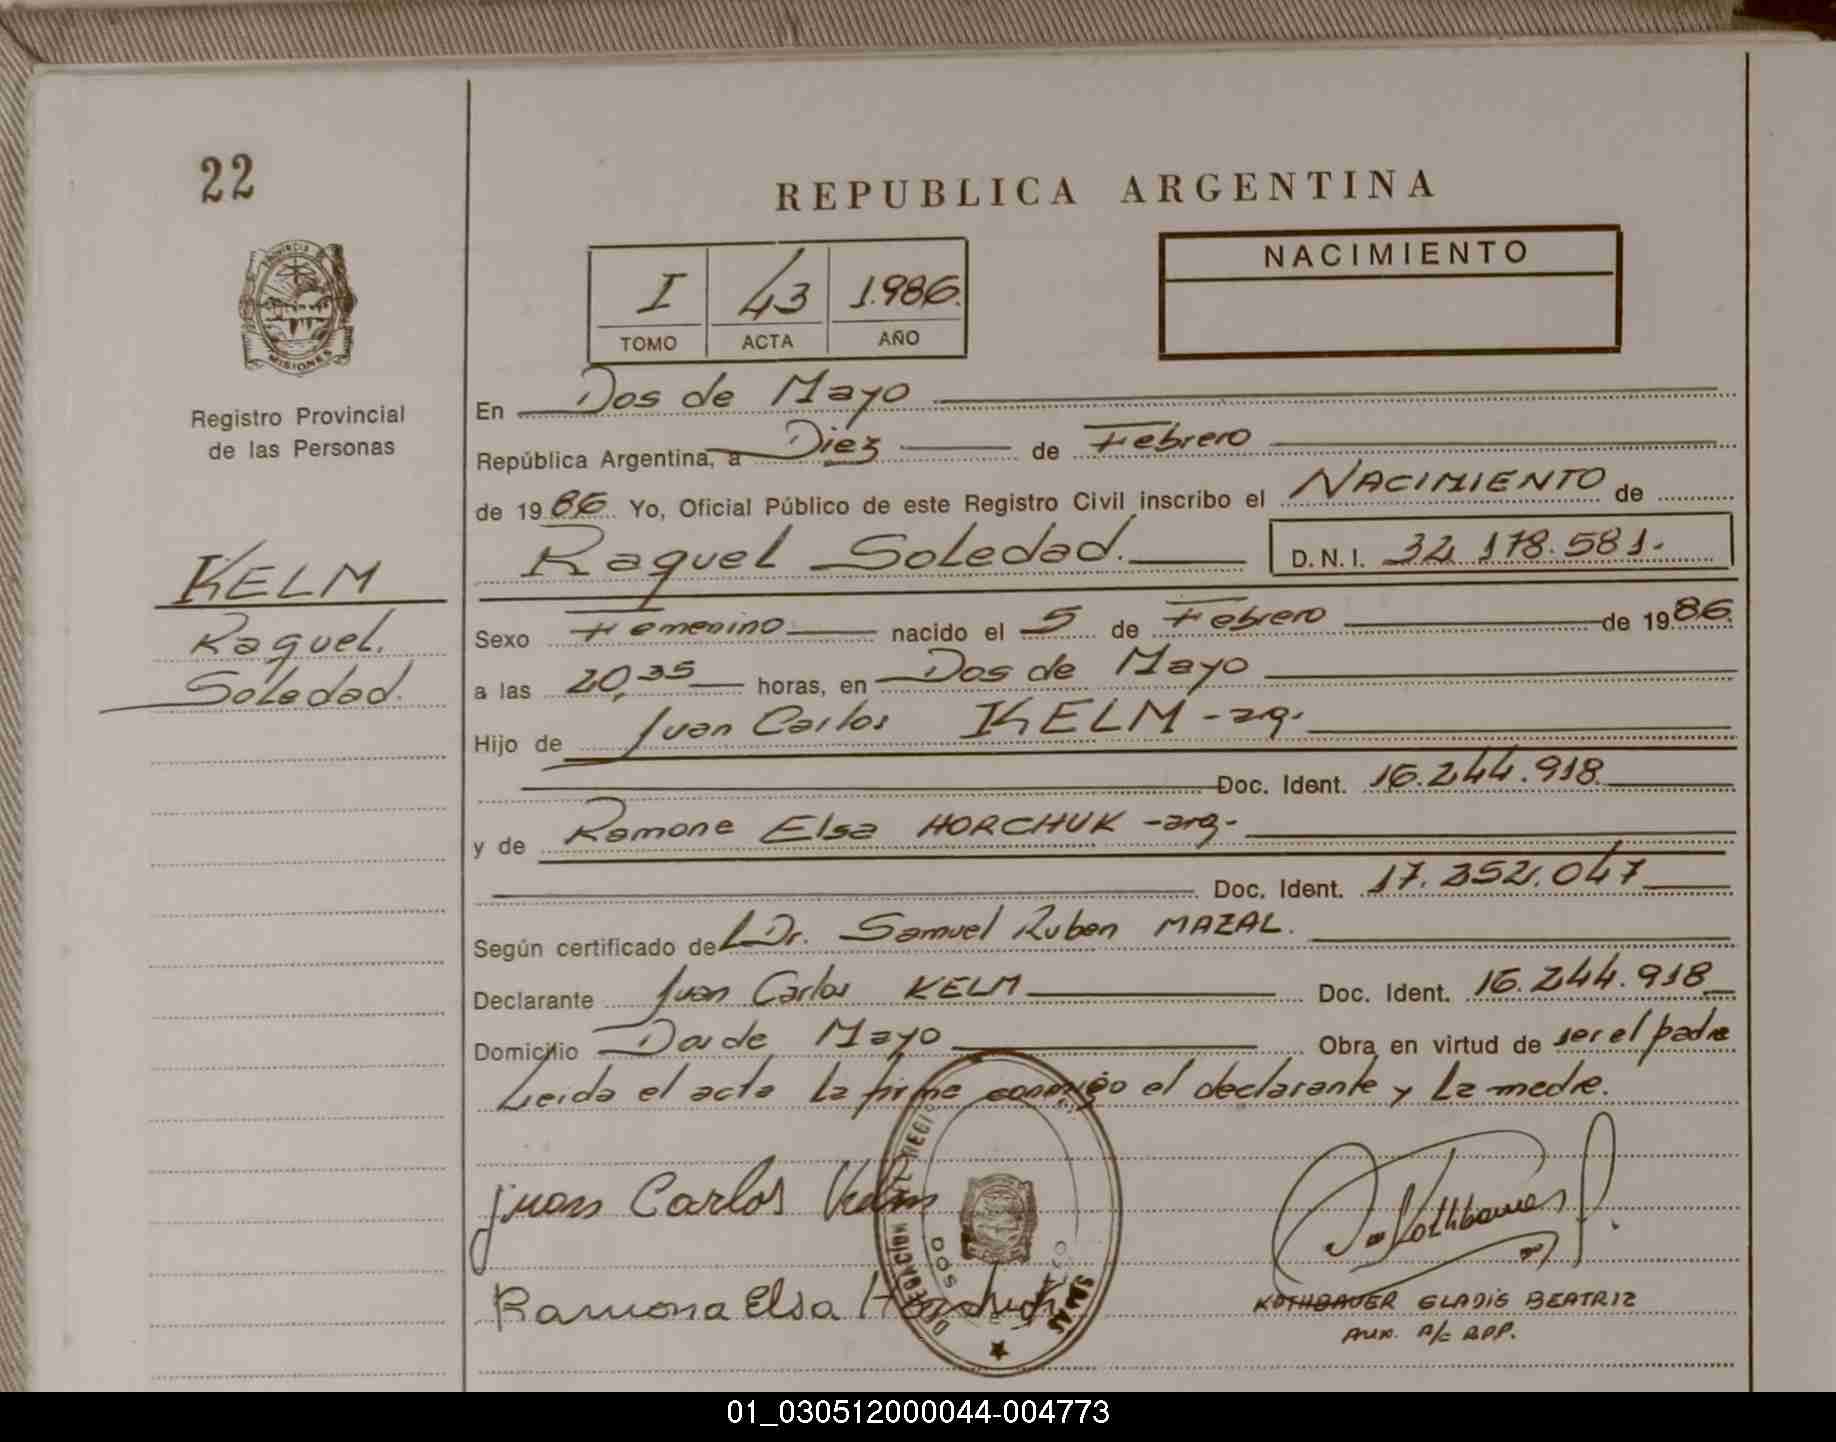 22
REPUBLICA ARGENTINA
PROVINCIA DE
MISIONES
I 43 1.986.
TOMO ACTA AÑO
NACIMIENTO
Registro Provincial
de las Personas
KELM
Raquel.
Soledad.
En Dos de Mayo
República Argentina, a Diez de Febrero
de 19 86 Yo, Oficial Público de este Registro Civil inscribo el NACIMIENTO de
Raquel Soledad. D.N.I. 32.178.581.-
Sexo Femenino nacido el 5 de Febrero de 19 86.
a las 20,35 horas, en Dos de Mayo
Hijo de Juan Carlos KELM -arg.
Doc. Ident. 16.244.918
y de Ramona Elsa HORCHUK -arg-
Doc. Ident. 17.352.047
Según certificado de Dr. Samuel Ruben MAZAL.
Declarante Juan Carlos KELM Doc. Ident. 16.244.918
Domicilio Dos de Mayo Obra en virtud de ser el padre
Leida el acta la firma conmigo el declarante y la madre.
Juan Carlos Kelm
Ramona Elsa Horchuk
DELEGACION DEL REGI
DOS
KOTHBAUER GLADIS BEATRIZ
AUX. A/C RPP.
01_030512000044-004773